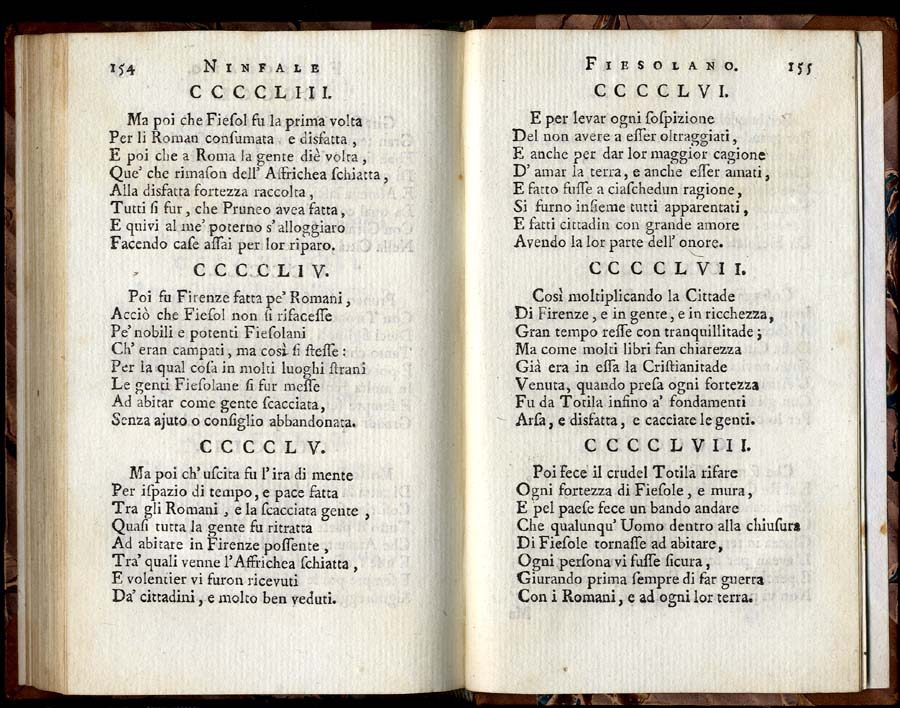 154 NINFALE
CCCCLIII.
Ma poi che Fieſol fu la prima volta
Per li Roman conſumata e disfatta ,
E poi che a Roma la gente diè volta ,
Que' che rimaſon dell' Affrichea ſchiatta ,
Alla disfatta fortezza raccolta ,
Tutti ſi fur , che Pruneo avea fatta ,
E quivi al me' poterno s' alloggiaro
Facendo caſe aſſai per lor riparo.
CCCCLIV.
Poi fu Firenze fatta pe' Romani ,
Acciò che Fieſol non ſi rifaceſſe
Pe' nobili e potenti Fieſolani
Ch' eran campati , ma così ſi ſteſſe :
Per la qual coſa in molti luoghi ſtrani
Le genti Fieſolane ſi fur meſſe
Ad abitar come gente ſcacciata,
Senza ajuto o conſiglio abbandonata.
CCCCLV.
Ma poi ch' uſcita fu l' ira di mente
Per iſpazio di tempo, e pace fatta
Tra gli Romani , e la ſcacciata gente ,
Quaſi tutta la gente fu ritratta
Ad abitare in Firenze poſſente ,
Tra' quali venne l' Affrichea ſchiatta ,
E volentier vi furon ricevuti
Da' cittadini , e molto ben veduti.
FIESOLANO. 155
CCCCLVI.
E per levar ogni ſoſpizione
Del non avere a eſſer oltraggiati ,
E anche per dar lor maggior cagione
D' amar la terra, e anche eſſer amati,
E fatto fuſſe a ciaſchedun ragione,
Si furno inſieme tutti apparentati ,
E fatti cittadin con grande amore
Avendo la lor parte dell' onore.
CCCCLVII.
Così moltiplicando la Cittade
Di Firenze , e in gente, e in ricchezza,
Gran tempo reſſe con tranquillitade ;
Ma come molti libri fan chiarezza
Già era in eſſa la Criſtianitade
Venuta, quando preſa ogni fortezza
Fu da Totila infino a' fondamenti
Arſa, e disfatta , e cacciate le genti.
CCCCLVIII.
Poi fece il crudel Totila rifare
Ogni fortezza di Fieſole , e mura ,
E pel paeſe fece un bando andare
Che qualunqu' Uomo dentro alla chiuſura
Di Fieſole tornaſſe ad abitare,
Ogni perſona vi fuſſe ſicura ,
Giurando prima ſempre di far guerra
Con i Romani , e ad ogni lor terra.